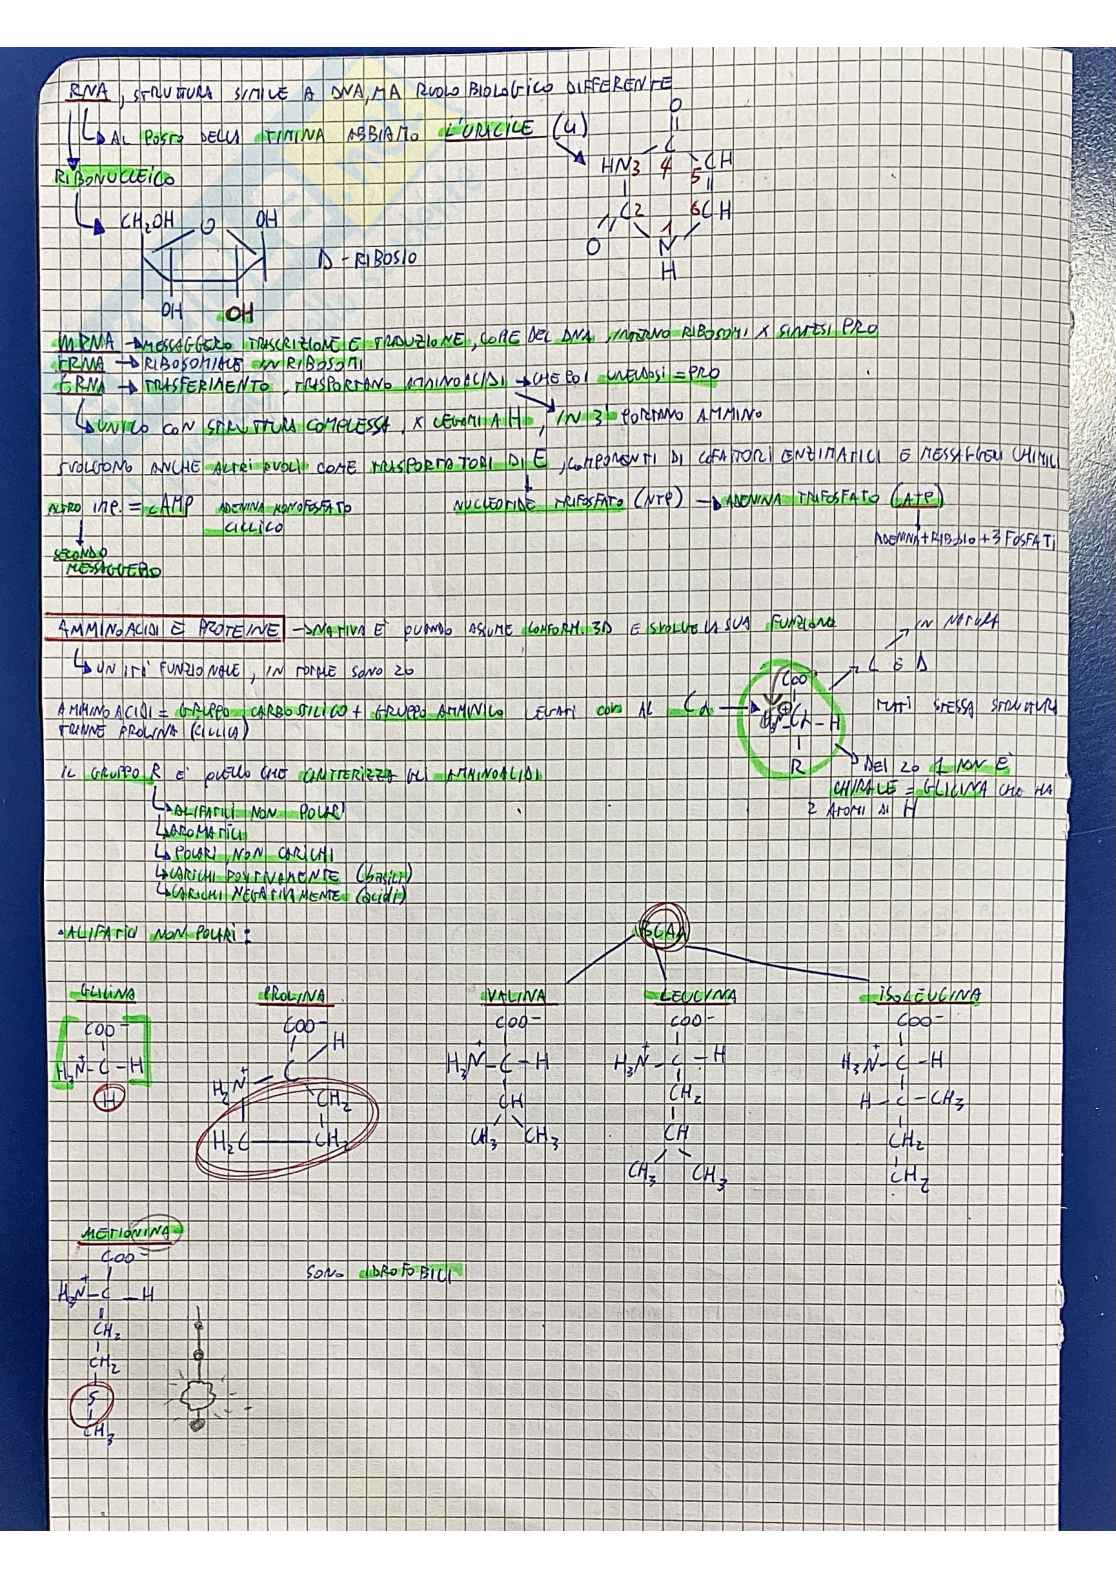 RNA, STRUTTURA SIMILE A DNA, MA RUOLO BIOLOGICO DIFFERENTE
AL POSTO DELLA TIMINA ABBIAMO L'URACILE (U)
RIBONUCLEICO
O
C
HN3 4 5CH
C2 6CH
O 1 N
H
CH2OH O OH
D-RIBOSIO
OH OH
mRNA → MESSAGGERO TRASCRIZIONE E TRADUZIONE, COPIE DEL DNA, INTORNO RIBOSOMI X SINTESI PRO
rRNA → RIBOSOMIALE IN RIBOSOMI
tRNA → TRASFERIMENTO, TRASPORTANO AMMINOACIDI → CHE POI UNENDOSI = PRO
UNICO CON STRUTTURA COMPLESSA, X LEGAMI A H, IN 3' PORTANO AMMINO
SVOLGONO ANCHE ALTRI RUOLI COME TRASPORTATORI DI E, COMPONENTI DI COFATTORI ENZIMATICI E MESSAGGERI CHIMICI
NUCLEOTIDE TRIFOSFATO (NTP) → ADENINA TRIFOSFATO (ATP)
ADENINA+RIBOSIO+3 FOSFATI
ALTRO IMP. = cAMP ADENINA MONOFOSFATO
CICLICO
SECONDO
MESSAGGERO
AMMINOACIDI E PROTEINE → NATIVA È QUANDO ASSUME CONFORM. 3D E SVOLGE LA SUA FUNZIONE
UNITÀ FUNZIONALE, IN TOTALE SONO 20
IN NATURA
L E D
AMMINOACIDI = GRUPPO CARBOSSILICO + GRUPPO AMMINICO LEGATI CON AL Cα
TRANNE PROLINA (CICLICA)
COO-
H3N-Cα-H
R
TUTTI STESSA STRUTTURA
DEI 20 1 NON È
CHIRALE = GLICINA CHE HA
2 ATOMI DI H
IL GRUPPO R È QUELLO CHE CARATTERIZZA GLI AMMINOACIDI
ALIFATICI NON POLARI
AROMATICI
POLARI NON CARICHI
CARICHI POSITIVAMENTE (basici)
CARICHI NEGATIVAMENTE (acidi)
• ALIFATICI NON POLARI:
BCAA
GLICINA
COO-
H3N+-C-H
H
PROLINA
COO-
H
H2N+ C
CH2
H2C CH2
VALINA
COO-
H3N+-C-H
CH
CH3 CH3
LEUCINA
COO-
H3N+-C-H
CH2
CH
CH3 CH3
ISOLEUCINA
COO-
H3N+-C-H
H-C-CH3
CH2
CH2
METIONINA
COO-
H3N+-C-H
CH2
CH2
S
CH3
SONO IDROFOBICI